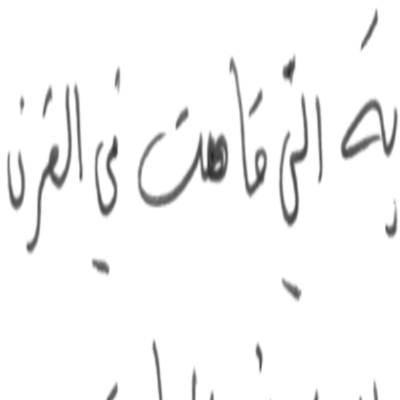 به التي قامت في القرن